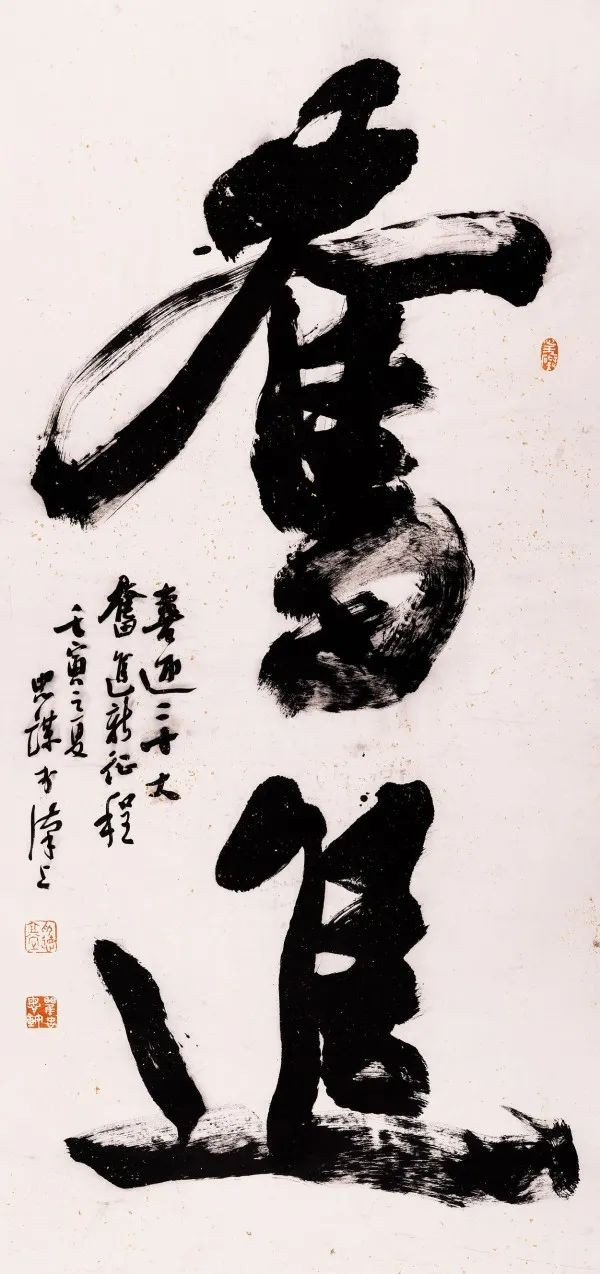 奮進
喜迎二十大
奮進新征程
壬寅之夏
忠謀书漢上